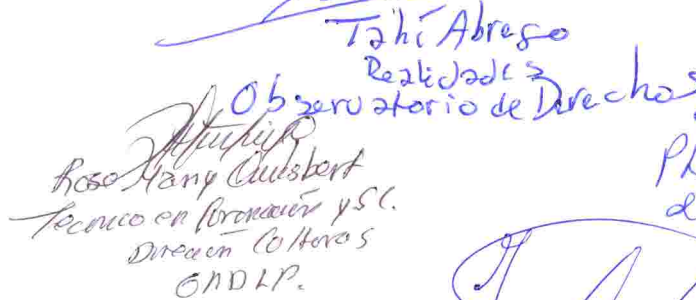 Tahí Abrego
Realidades
Observatorio de Derechos
Rose Mary Quisbert
Tecnico en Promoción y SC.
Dirección Culturas
GADLP.